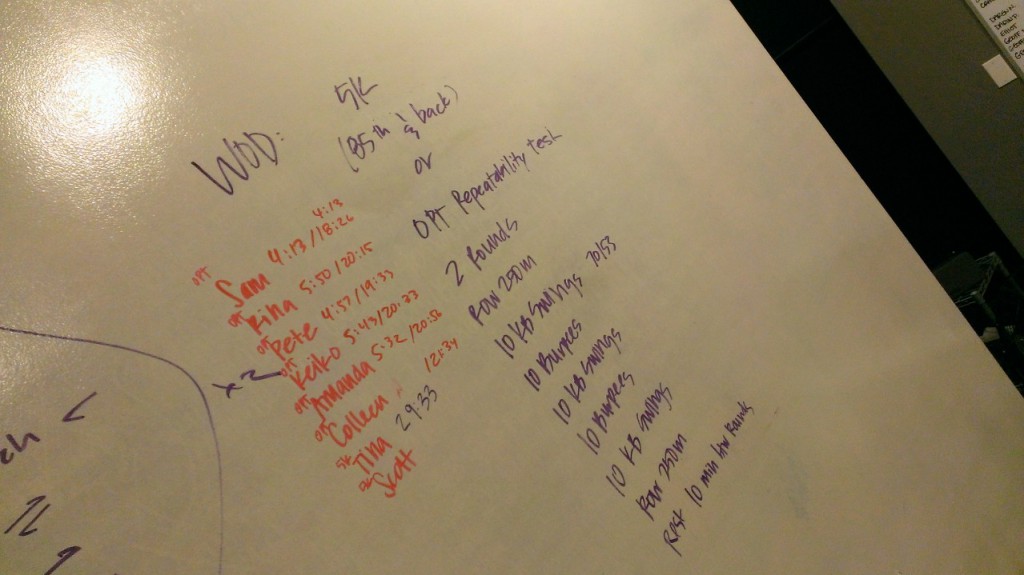 WOD:
5K
(85th & back)
or
OPT Repeatability test
2 Rounds
Row 250m
10 KB Swings 70/53
10 Burpees
10 KB Swings
10 Burpees
10 KB Swings
Row 250m
Rest 10 min btw Rounds
4:13
OPT Sam 4:13/18:26
OPT Rina 5:50/20:15
OPT Pete 4:57/19:33
OPT Keiko 5:43/20:23
OPT Amanda 5:32/20:58
OPT Colleen 12:34
5K Tina 29:33
5K Scott
x2
ch